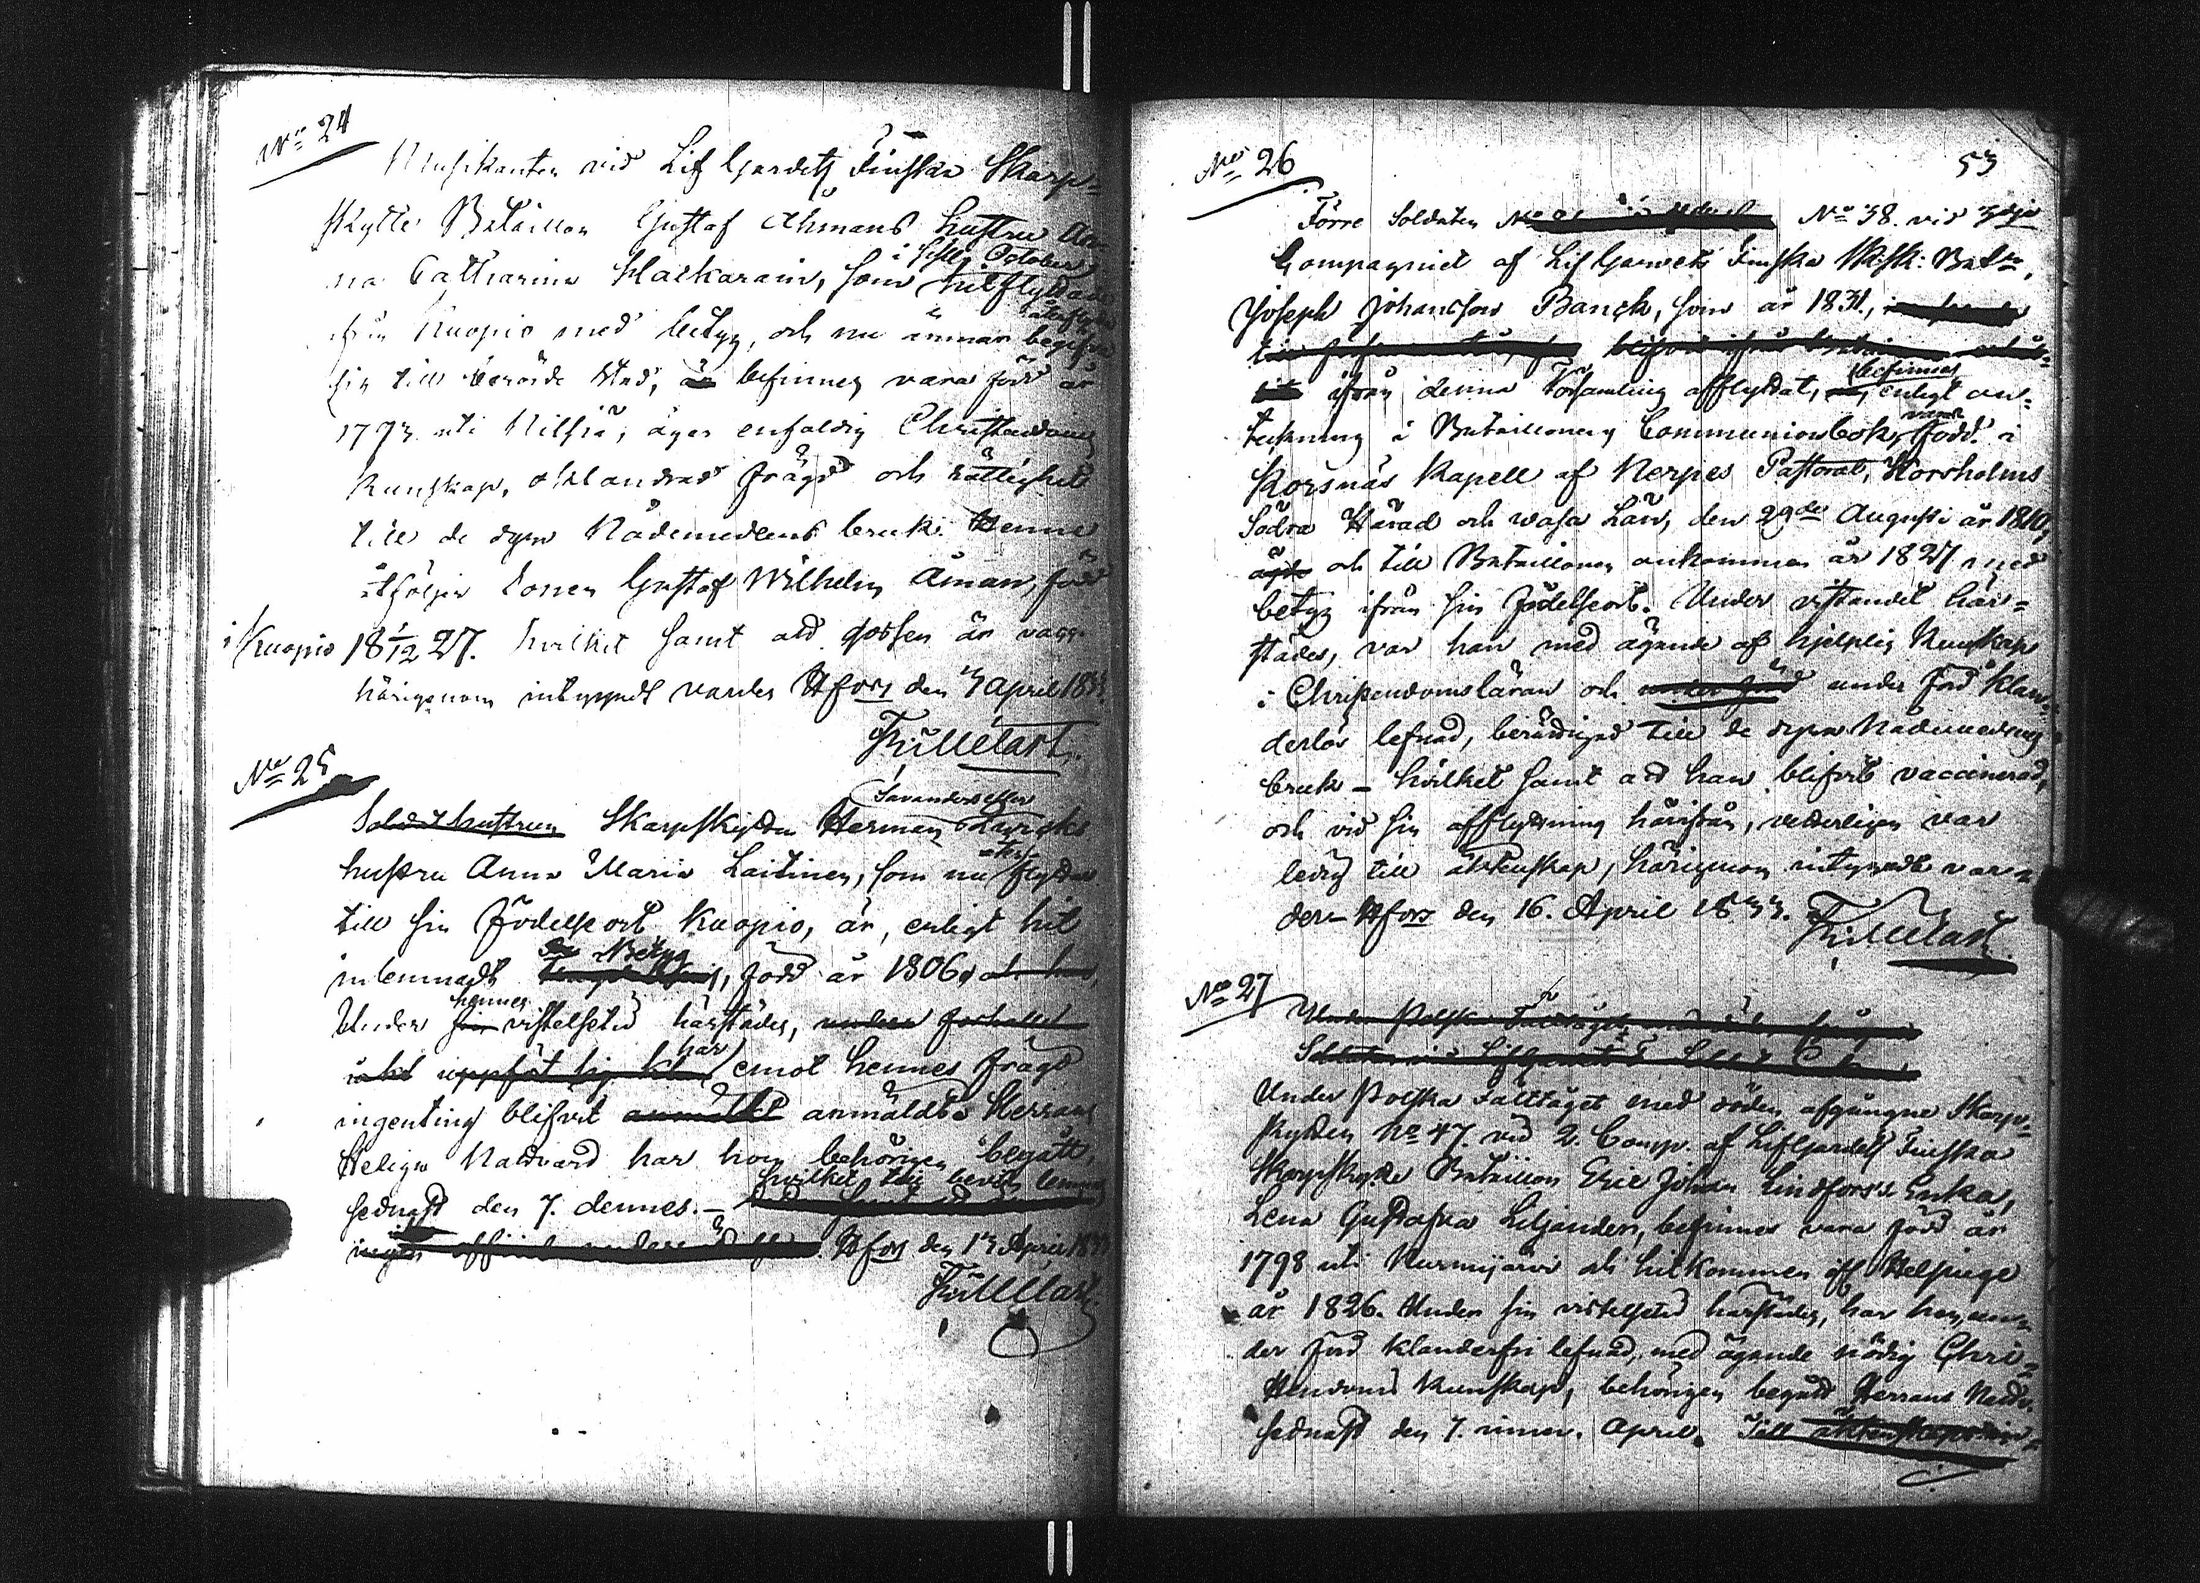 No 24
Musikanten vid Lif Gardets Finska Skarp-
skytte Bataillon Gustaf Åhmans hustru An-
i sistl. October
na Catharina Hackarain, som hitflyttade
ifrån Kuopio med betyg, och nu ämnar begifva
sig till berörde stad, är befinnes vara född år
1793 uti Nilsiä, äger enfaldig Christendoms
kunskap, oklandrad frägd och rättighet
till de dyra Nådemedlens bruk. Henne
åtföljer sonen Gustaf Wilhelm Åman, född
i Kuopio 18 1/12 27. hvilket samt att gossen är vacc.
härigenom intygadt varder Hfors den 3 April 1833.
No 25
Savander eller
Soldathustrun Skarpskytten Herman
hustru Anna Maria Laitinen, som nu åter flyttar
till sin födelseort Kuopio, är, enligt hit
inlemnadt Betyg, född år 1806.
Under hennes vistelsetid härstädes,
har emot hennes frägd
ingenting blifvit anmäldt. Herrans
Heliga Nattvard har hon behörigen begått,
sednast den 7. dennes. – hvilket till bevis lemnas
Hfors den 13 April 1833
53
No 26
Förre Soldaten No 38. vid 3dje
Compagniet af Lif Gardets Finska Sk.sk: Batn,
Joseph Johansson Banck, som år 1831,
ifrån denna Församling afflyttat, befinnes enligt an-
teckning i Bataillonens Communionbok, vara född i
Korsnäs Kapell af Nerpes Pastorat, Korsholms
Södra Härad och Wasa Län, den 29de Augusti år 1810,
och till Bataillonen ankommen år 1827 med
betyg ifrån sin födelseort. Under vistandet här-
städes, var han med ägande af hjelplig kunskap
i Christendomsläran och under förd klan-
derlös lefnad, berättigad till de dyra Nådemedlens
bruk – hvilket samt att han blifvit vaccinerad,
och vid sin afflyttning härifrån, veterligen var
ledig till äktenskap, härigenom intygadt var-
der – Hfors den 16. April 1833.
No 27
Under Polska Fälttåget
Under Polska Fälttåget med döden afgångne Skarp-
skytten No 47. vid 2. Comp. af LifGardets Finska
Skarpskytte Bataillon Eric Johan Lindforss Enka,
Lena Gustafva Liljander, befinnes vara född år
1798 uti Nurmijärvi och hitkommen ifr. Helsinge
år 1826. Under sin vistelsetid härstädes, har hon, un-
der förd klanderfri lefnad, med ägande nödig Chri-
stendoms kunskap, behörigen begått Herrans Nattv.
sednast den 7. innev. April. Till